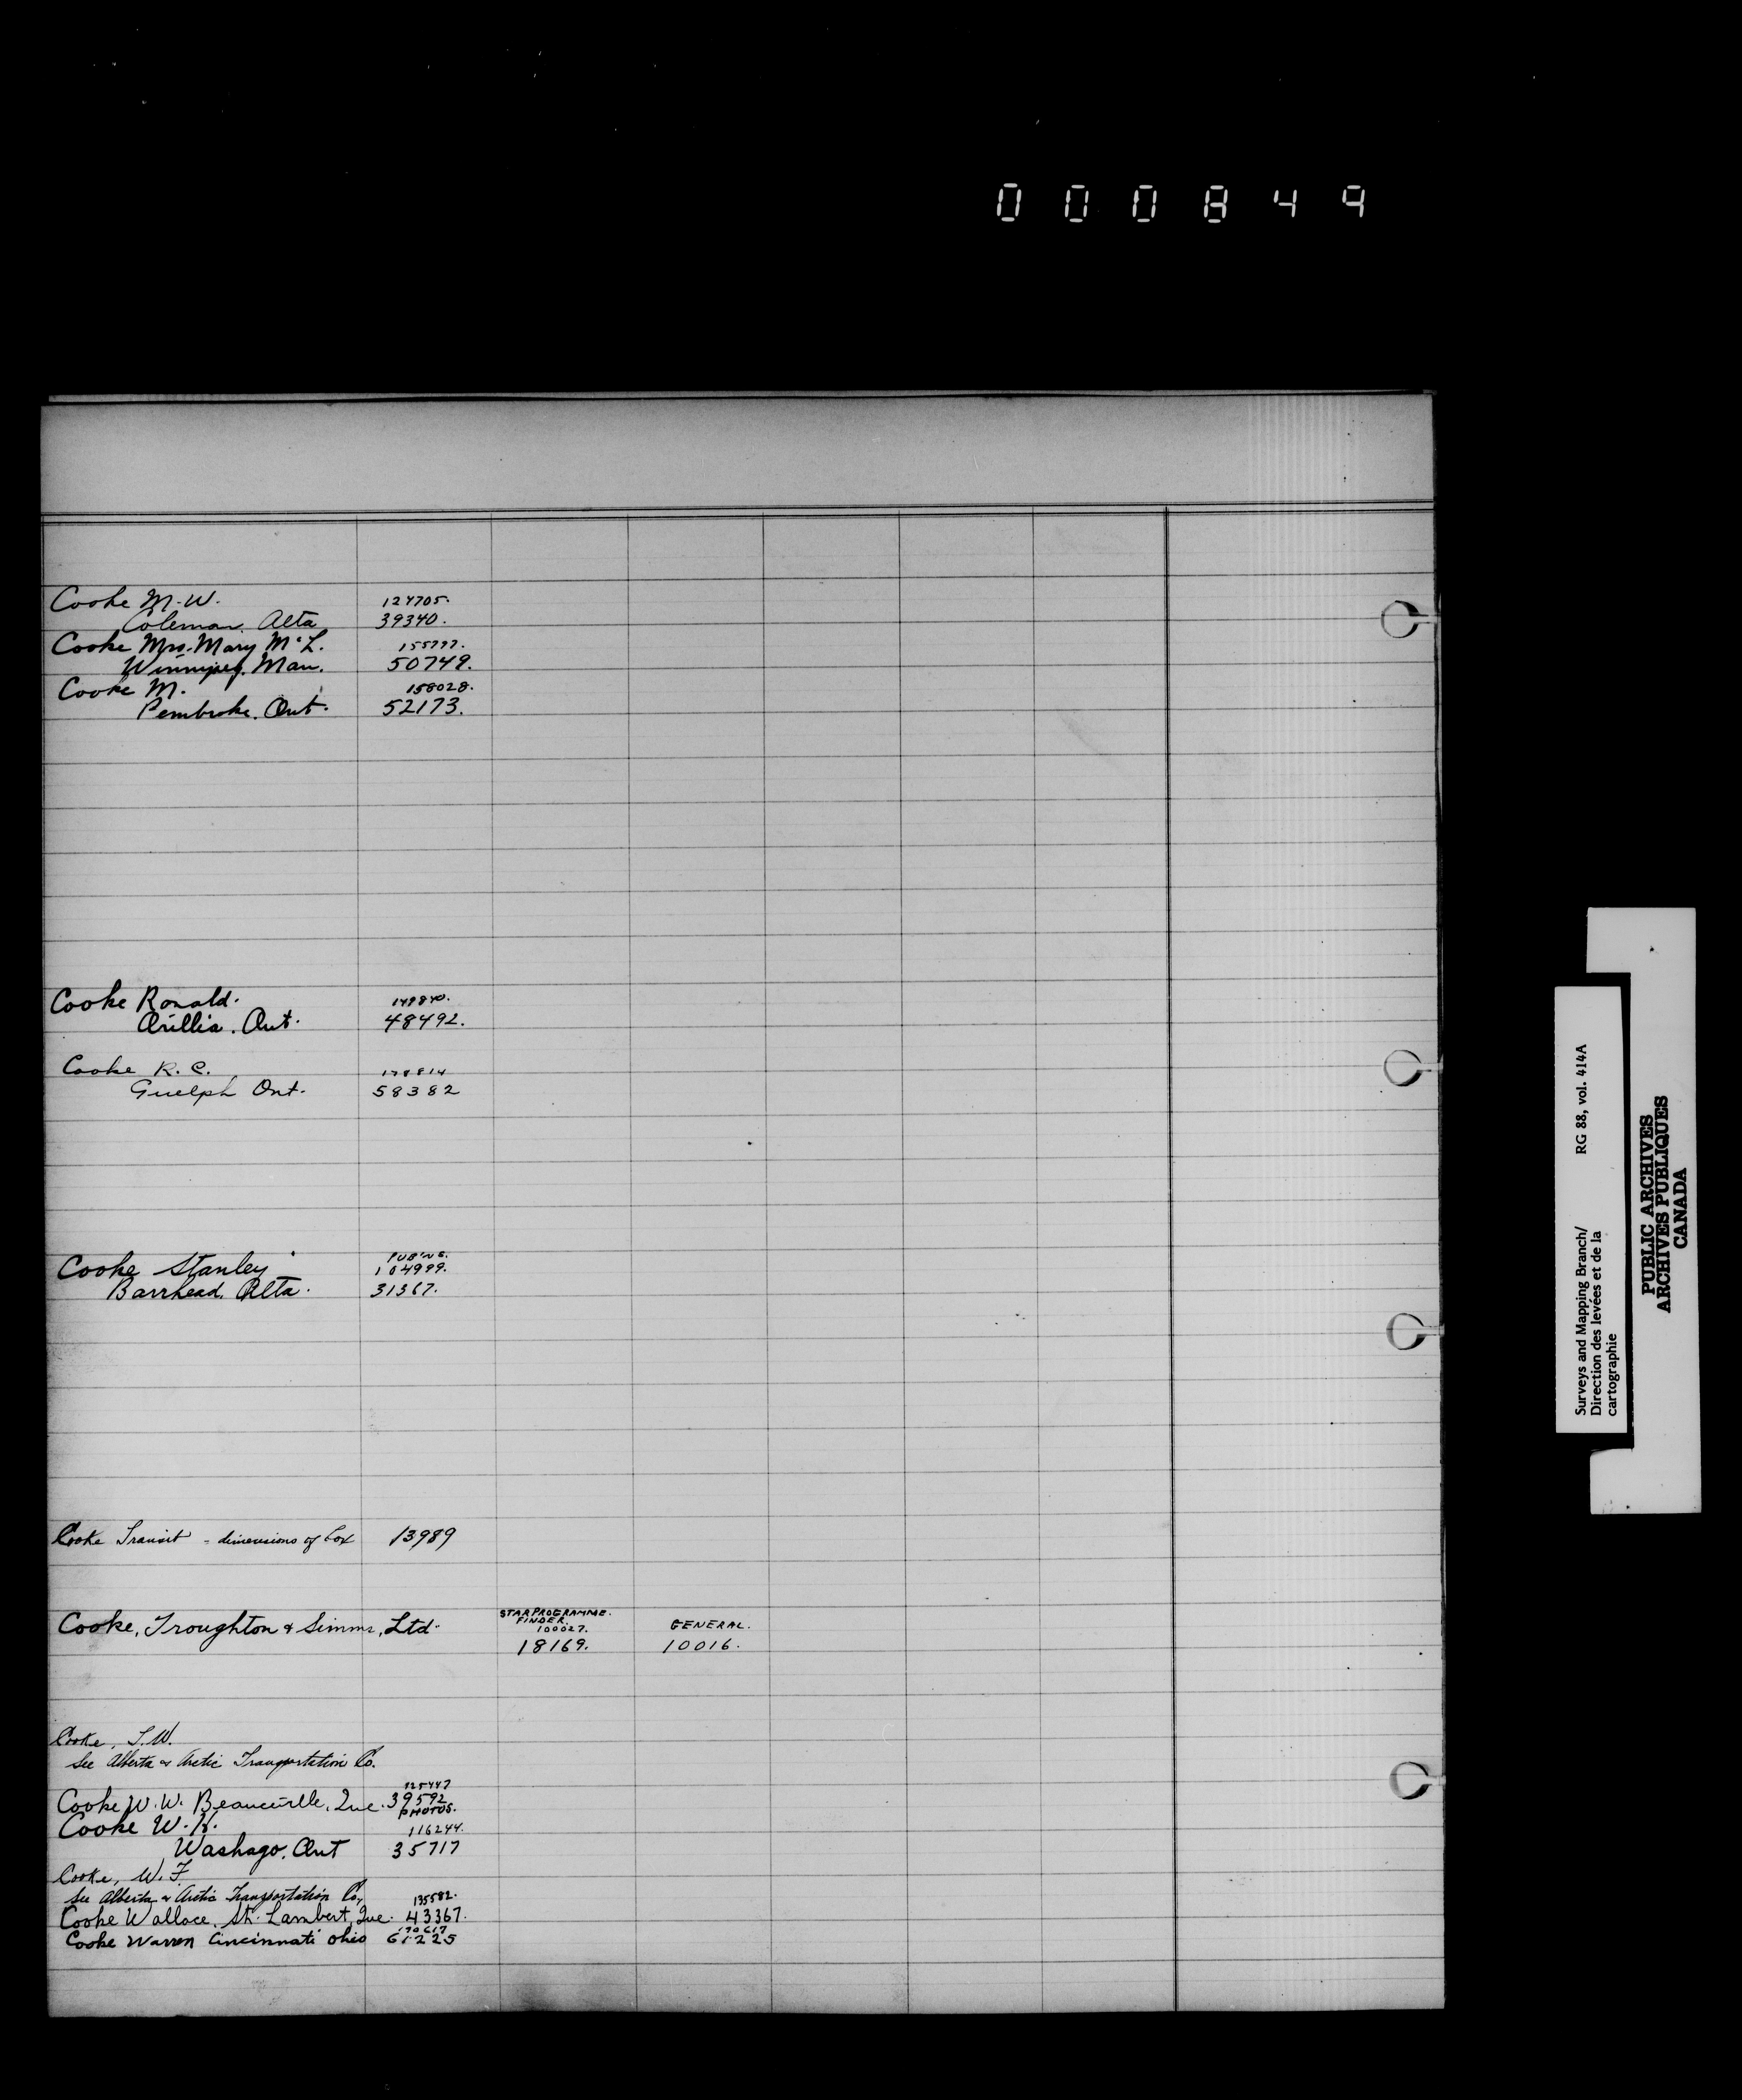 000849
Cooke M.W. 124705.
Coleman. Alta 39340.
Cooke Mrs. Mary McL. 155797.
Winnipeg. Man. 50749.
Cooke M. 158028.
Pembroke. Ont. 52173.
Cooke Ronald. 149840.
Orillia. Ont. 48492.
Cooke R.C. 178814
Guelph Ont. 58382
PUB'NS.
Cooke Stanley 104999.
Barrhead. Alta. 31367.
Cooke Transit - dimensions of box 13989
STAR PROGRAMME.
FINDER.
100027. GENERAL.
Cooke, Troughton & Simms, Ltd. 18169. 10016.
Cooke, T.W.
See Alberta & Arctic Transportation Co.
125447
Cooke W.W. Beauceville, Que. 39592
PHOTOS.
Cooke W. 116244.
Washago. Ont 35717
Cooke, W.F.
See Alberta & Arctic Transportation Co. 135582.
Cooke Wallace. St. Lambert, Que. 43367.
170617
Cooke Warren Cincinnati Ohio 61225
Surveys and Mapping Branch/ RG 88, vol. 414A
Direction des levées et de la
cartographie
PUBLIC ARCHIVES
ARCHIVES PUBLIQUES
CANADA